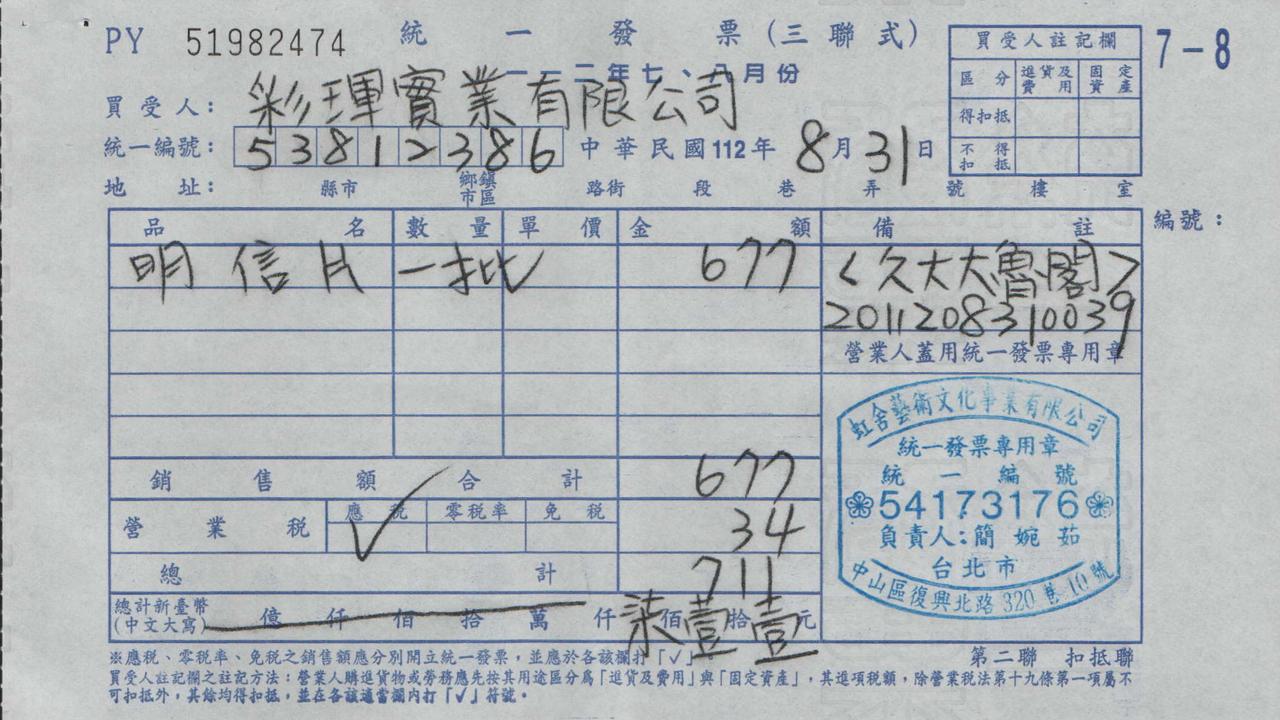 PY 51982474 統一發票(三聯式) 7-8
一一二年七、八月份
買受人: 彩琿實業有限公司
統一編號: 53812386 中華民國112年8月31日
地址: 縣市 鄉鎮市區 路街 段 巷 弄 號 樓 室
買受人註記欄
區分 進貨及費用 固定資產
得扣抵
不得扣抵
編號:
品名 數量 單價 金額 備註
明信片 一批 677 <久大大魯閣>
2011208310039
營業人蓋用統一發票專用章
銷售額合計 677
營業稅 應稅 ✓ 零稅率 免稅 34
總計 711
總計新臺幣(中文大寫) 億 仟 佰 拾 萬 仟 柒佰壹拾壹元
虹舍藝術文化事業有限公司
統一發票專用章
統一編號
54173176
負責人:簡婉茹
台北市
中山區復興北路320巷10號
第二聯 扣抵聯
※應稅、零稅率、免稅之銷售額應分別開立統一發票,並應於各該欄打「✓」。
買受人註記欄之註記方法:營業人購進貨物或勞務應先按其用途區分為「進貨及費用」與「固定資產」,其進項稅額,除營業稅法第十九條第一項屬不
可扣抵外,其餘均得扣抵,並在各該適當欄內打「✓」符號。